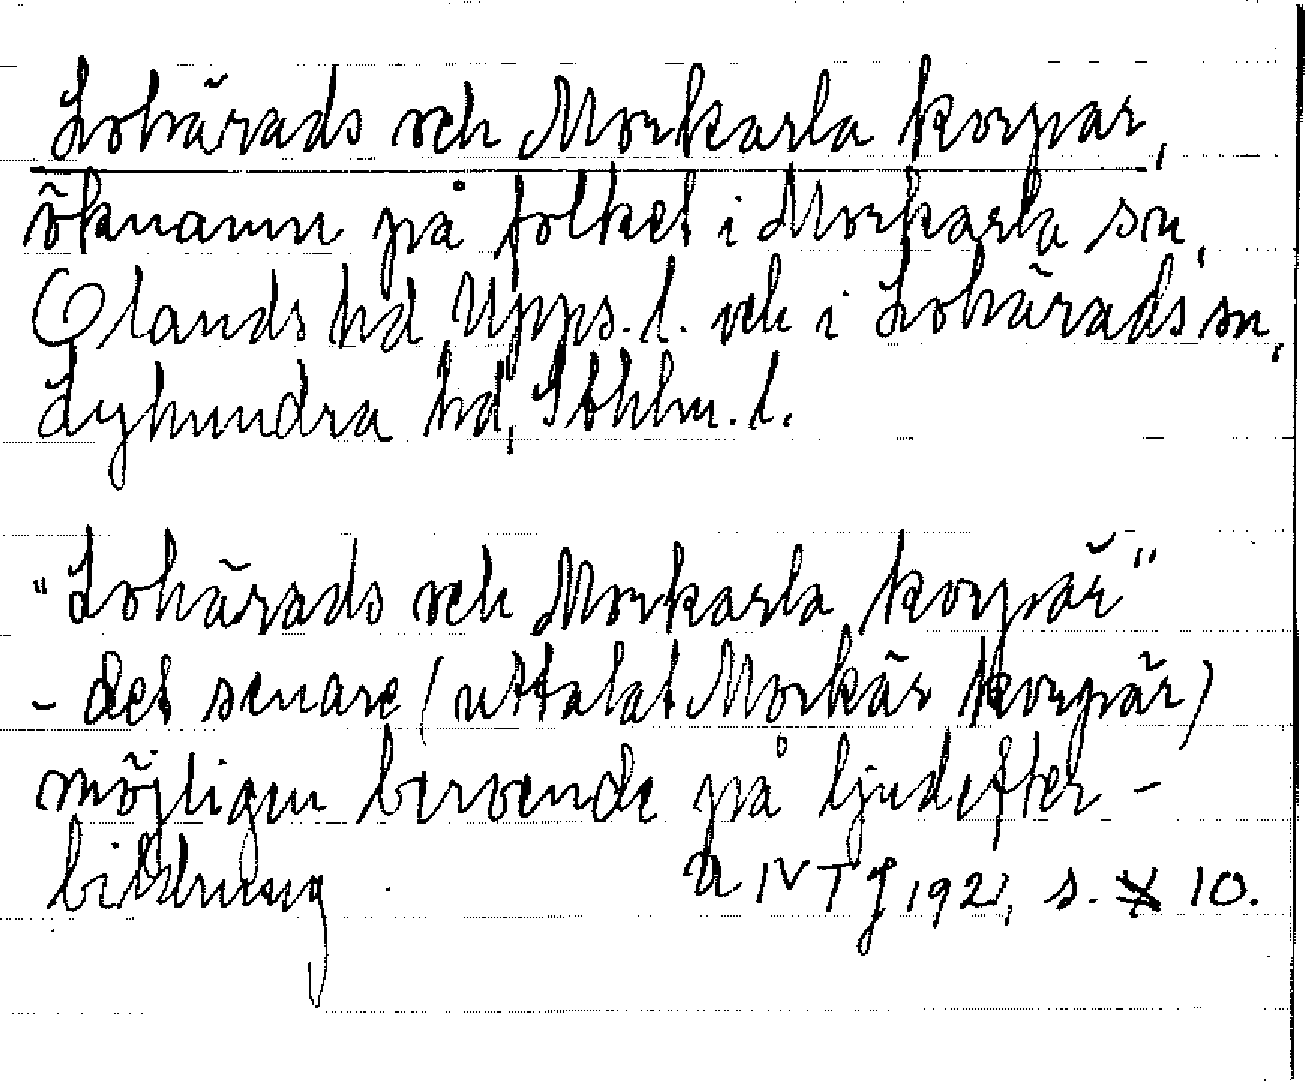 Lohärads och Morkarla korpar,
öknamn på folket i Morkarla sn,
Olands hd Upps. l. och i Lohärads sn,
Lyhundra hd, Sthlm. l.
"Lohärads och Morkarla korpär"
- det senare (uttalat Morkär korpär)
möjligen beroende på ljudefter-
bildning
IV T J 192, s. 10.